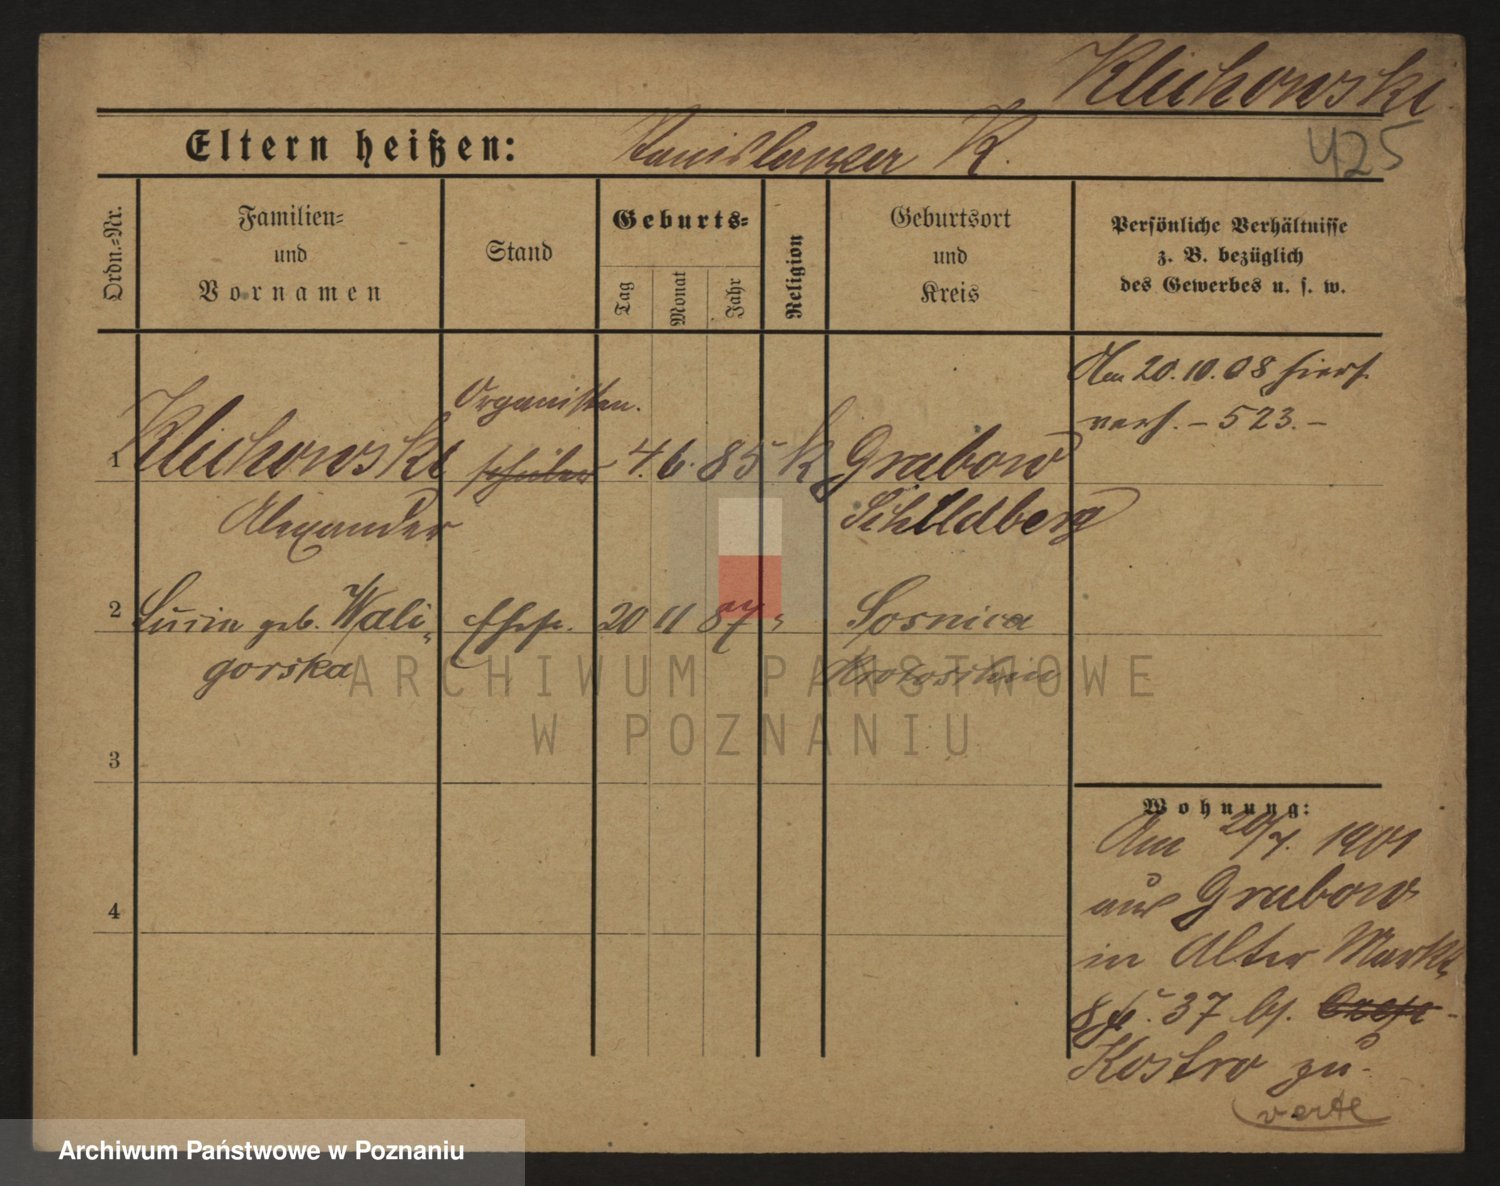 Klichowski
Eltern heißen: Stanislaus K.
425
Ordn.-Nr.
Familien-
und
Vornamen
Stand
Geburts-
Tag
Monat
Jahr
Religion
Geburtsort
und
Kreis
Persönliche Verhältnisse
z. B. bezüglich
des Gewerbes u. s. w.
Am 20.10.08 hierh.
verh. - 523. -
Organisten.
1 Klichowski schüler 4. 6. 85 k Grabow
Alexander Schildberg
2 geb. Wali- Ehefr. 20 11 87 " Sosnica
gorska Krotoschin
3
4
Wohnung:
Am 20/7. 1901
aus Grabow
in Alter Markt
37 bei
Kostro zu-
verte
ARCHIWUM PAŃSTWOWE
W POZNANIU
Archiwum Państwowe w Poznaniu